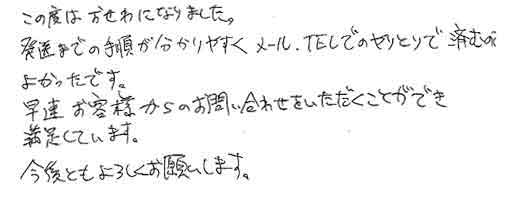 この度はおせわになりました。
発送までの手順が分かりやすくメール、TELでのやりとりで済むので
よかったです。
早速お客様からのお問い合わせをいただくことができ
満足しています。
今後ともよろしくお願いします。